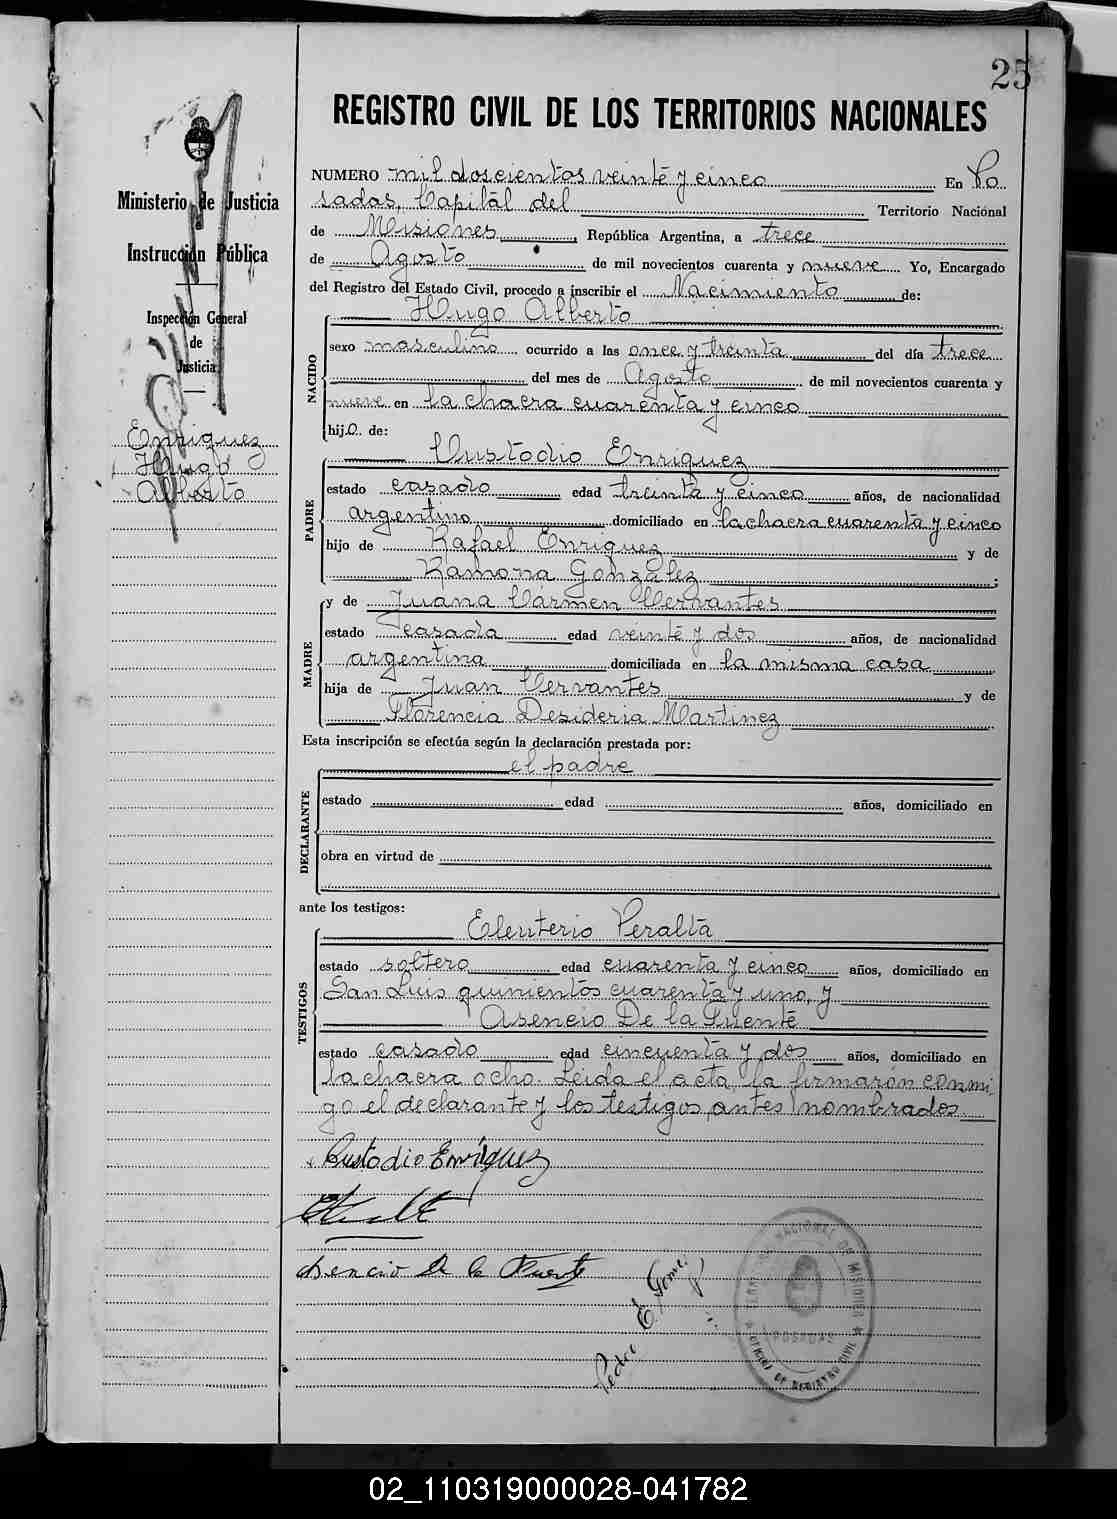 25
REGISTRO CIVIL DE LOS TERRITORIOS NACIONALES
Ministerio de Justicia
Instrucción Pública
Inspección General
de
Justicia
Enriquez
Hugo
Alberto
NUMERO mil doscientos veinte y cinco En Po
sadas, Capital del Territorio Nacional
de Misiones, República Argentina, a trece
de Agosto de mil novecientos cuarenta y nueve Yo, Encargado
del Registro del Estado Civil, procedo a inscribir el Nacimiento de:
NACIDO
Hugo Alberto
sexo masculino ocurrido a las once y treinta del día trece
del mes de Agosto de mil novecientos cuarenta y
nueve en la chacra cuarenta y cinco
hij.o. de:
PADRE
Custodio Enriquez
estado casado edad treinta y cinco años, de nacionalidad
argentino domiciliado en la chacra cuarenta y cinco
hijo de Rafael Enriquez y de
Ramona González ;
MADRE
y de Juana Carmen Cervantes
estado casada edad veinte y dos años, de nacionalidad
argentina domiciliada en la misma casa
hija de Juan Cervantes y de
Florencia Desideria Martinez
Esta inscripción se efectúa según la declaración prestada por:
DECLARANTE
el padre
estado edad años, domiciliado en
obra en virtud de
ante los testigos:
TESTIGOS
Eleuterio Peralta
estado soltero edad cuarenta y cinco años, domiciliado en
San Luis quinientos cuarenta y uno, y
Asencio De la Fuente
estado casado edad cincuenta y dos años, domiciliado en
la chacra ocho. Leida el acta, la firmarón conmi-
go el declarante y los testigos antes nombrados.
Custodio Enriquez
Asencio De la Fuente
Pedro E. Gomez
TERRITORIO NACIONAL DE MISIONES
POSADAS
OFICINA DE REGISTRO CIVIL
02_110319000028-041782